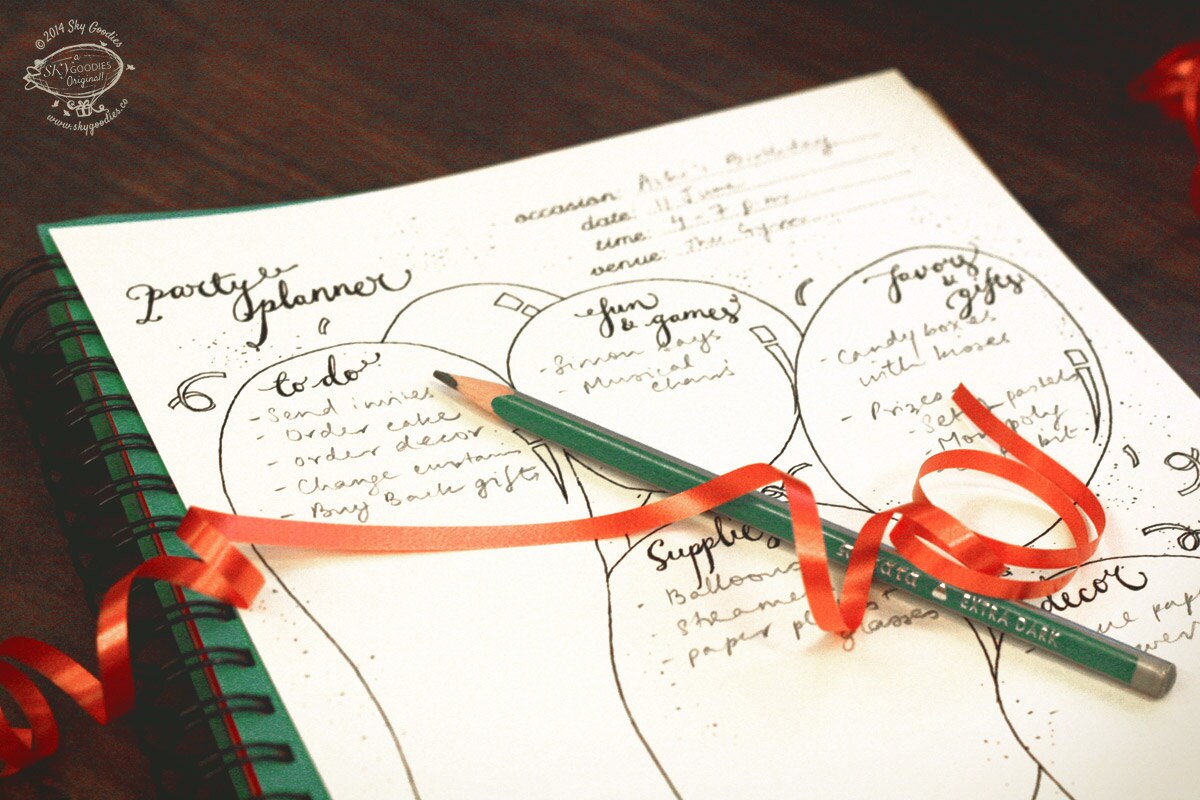 © 2014 Sky Goodies
a
SKYGOODIES
Original!
www.skygoodies.co
occasion: Birthday
date: 11 June
time: 4 - 7 p.m
venue: The
party
planner
to do
- Send invites
- Order cake
- order decor
- Change curtains
- Buy Back gifts
fun
& games
- Simon Says
- Musical
chairs
favors
&
gifts
- Candy boxes
with kisses
- Prizes
- Set of pastels
- Monopoly
Supplies
- Balloons
- Streamers
- paper
glasses
decor
EXTRA DARK